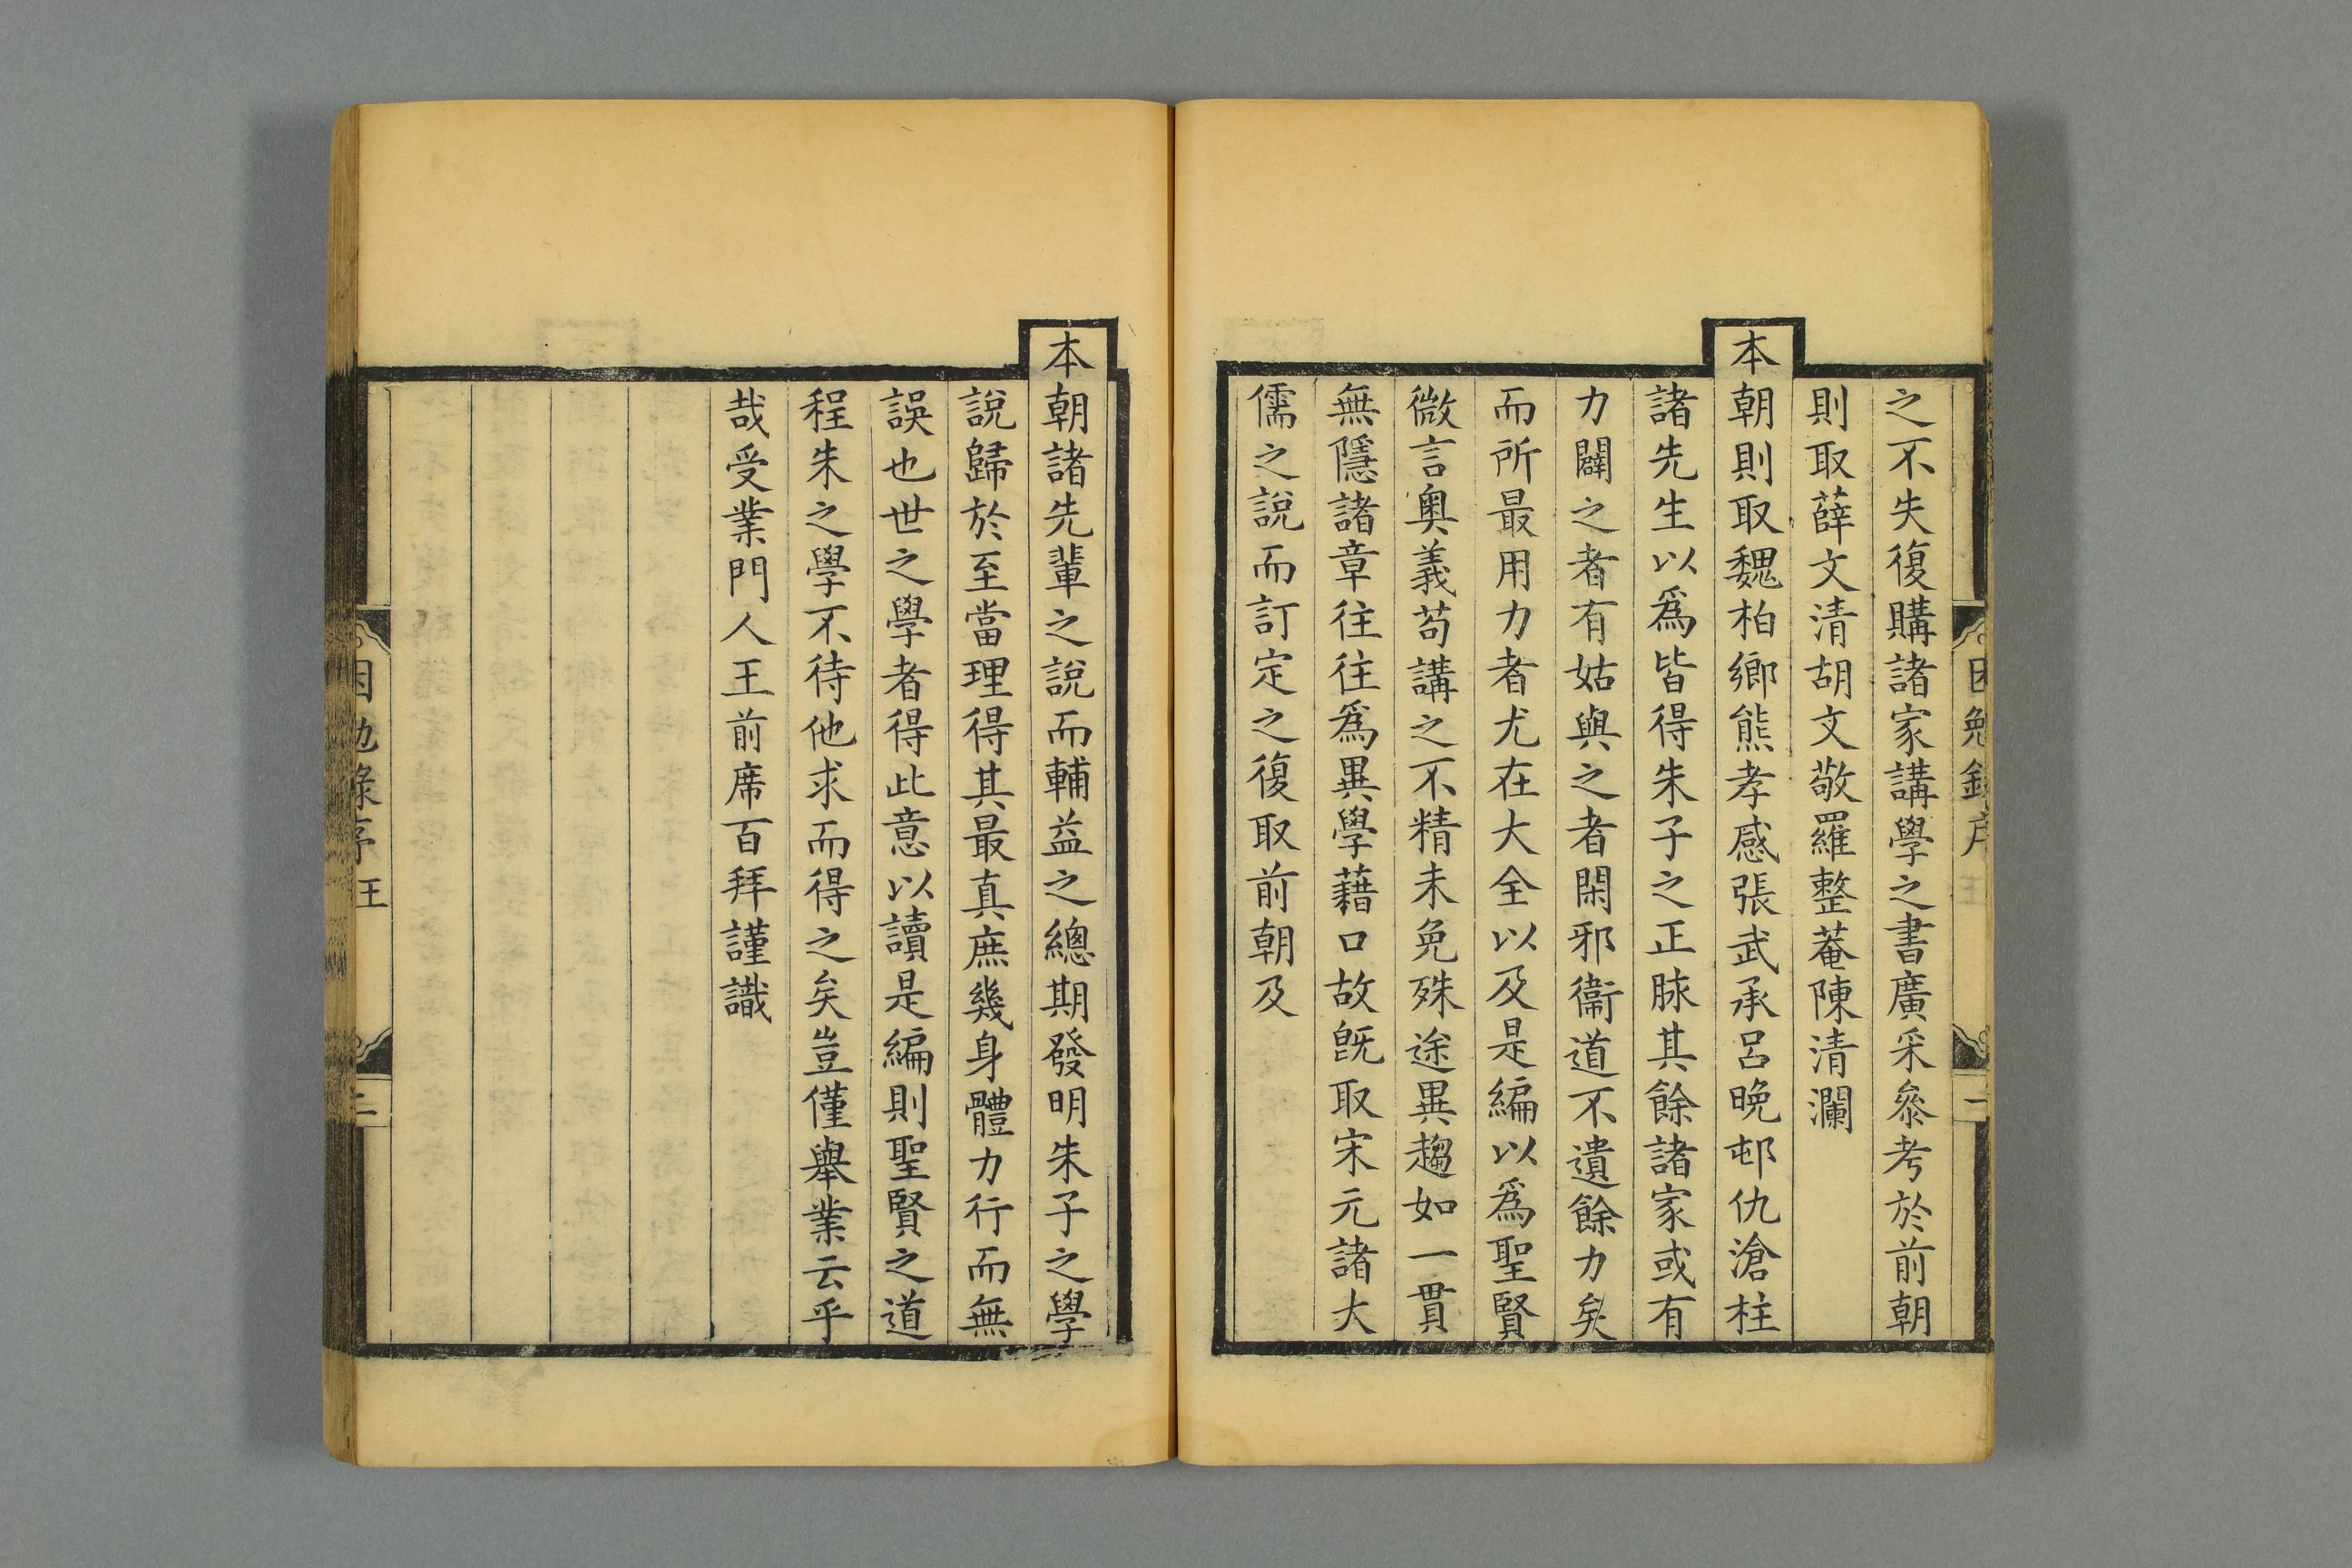 之不失復購諸家講學之書廣采叅考於前朝
則取薛文清胡文敬羅整菴陳清瀾
本朝則取魏柏鄉熊孝感張武承呂晚邨仇滄柱
諸先生以爲皆得朱子之正脉其餘諸家或有
力闢之者有姑與之者閑邪衞道不遺餘力矣
而所最用力者尤在大全以及是編以爲聖賢
微言奥義苟講之不精未免殊途異趨如一貫
無隱諸章往往爲異學藉口故旣取宋元諸大
儒之說而訂定之復取前朝及
本朝諸先輩之說而輔益之總期發明朱子之學
說歸於至當理得其最真庶幾身體力行而無
誤也世之學者得此意以讀是編則聖賢之道
程朱之學不待他求而得之矣豈僅舉業云乎
哉受業門人王前席百拜謹識
困勉錄序 王
二